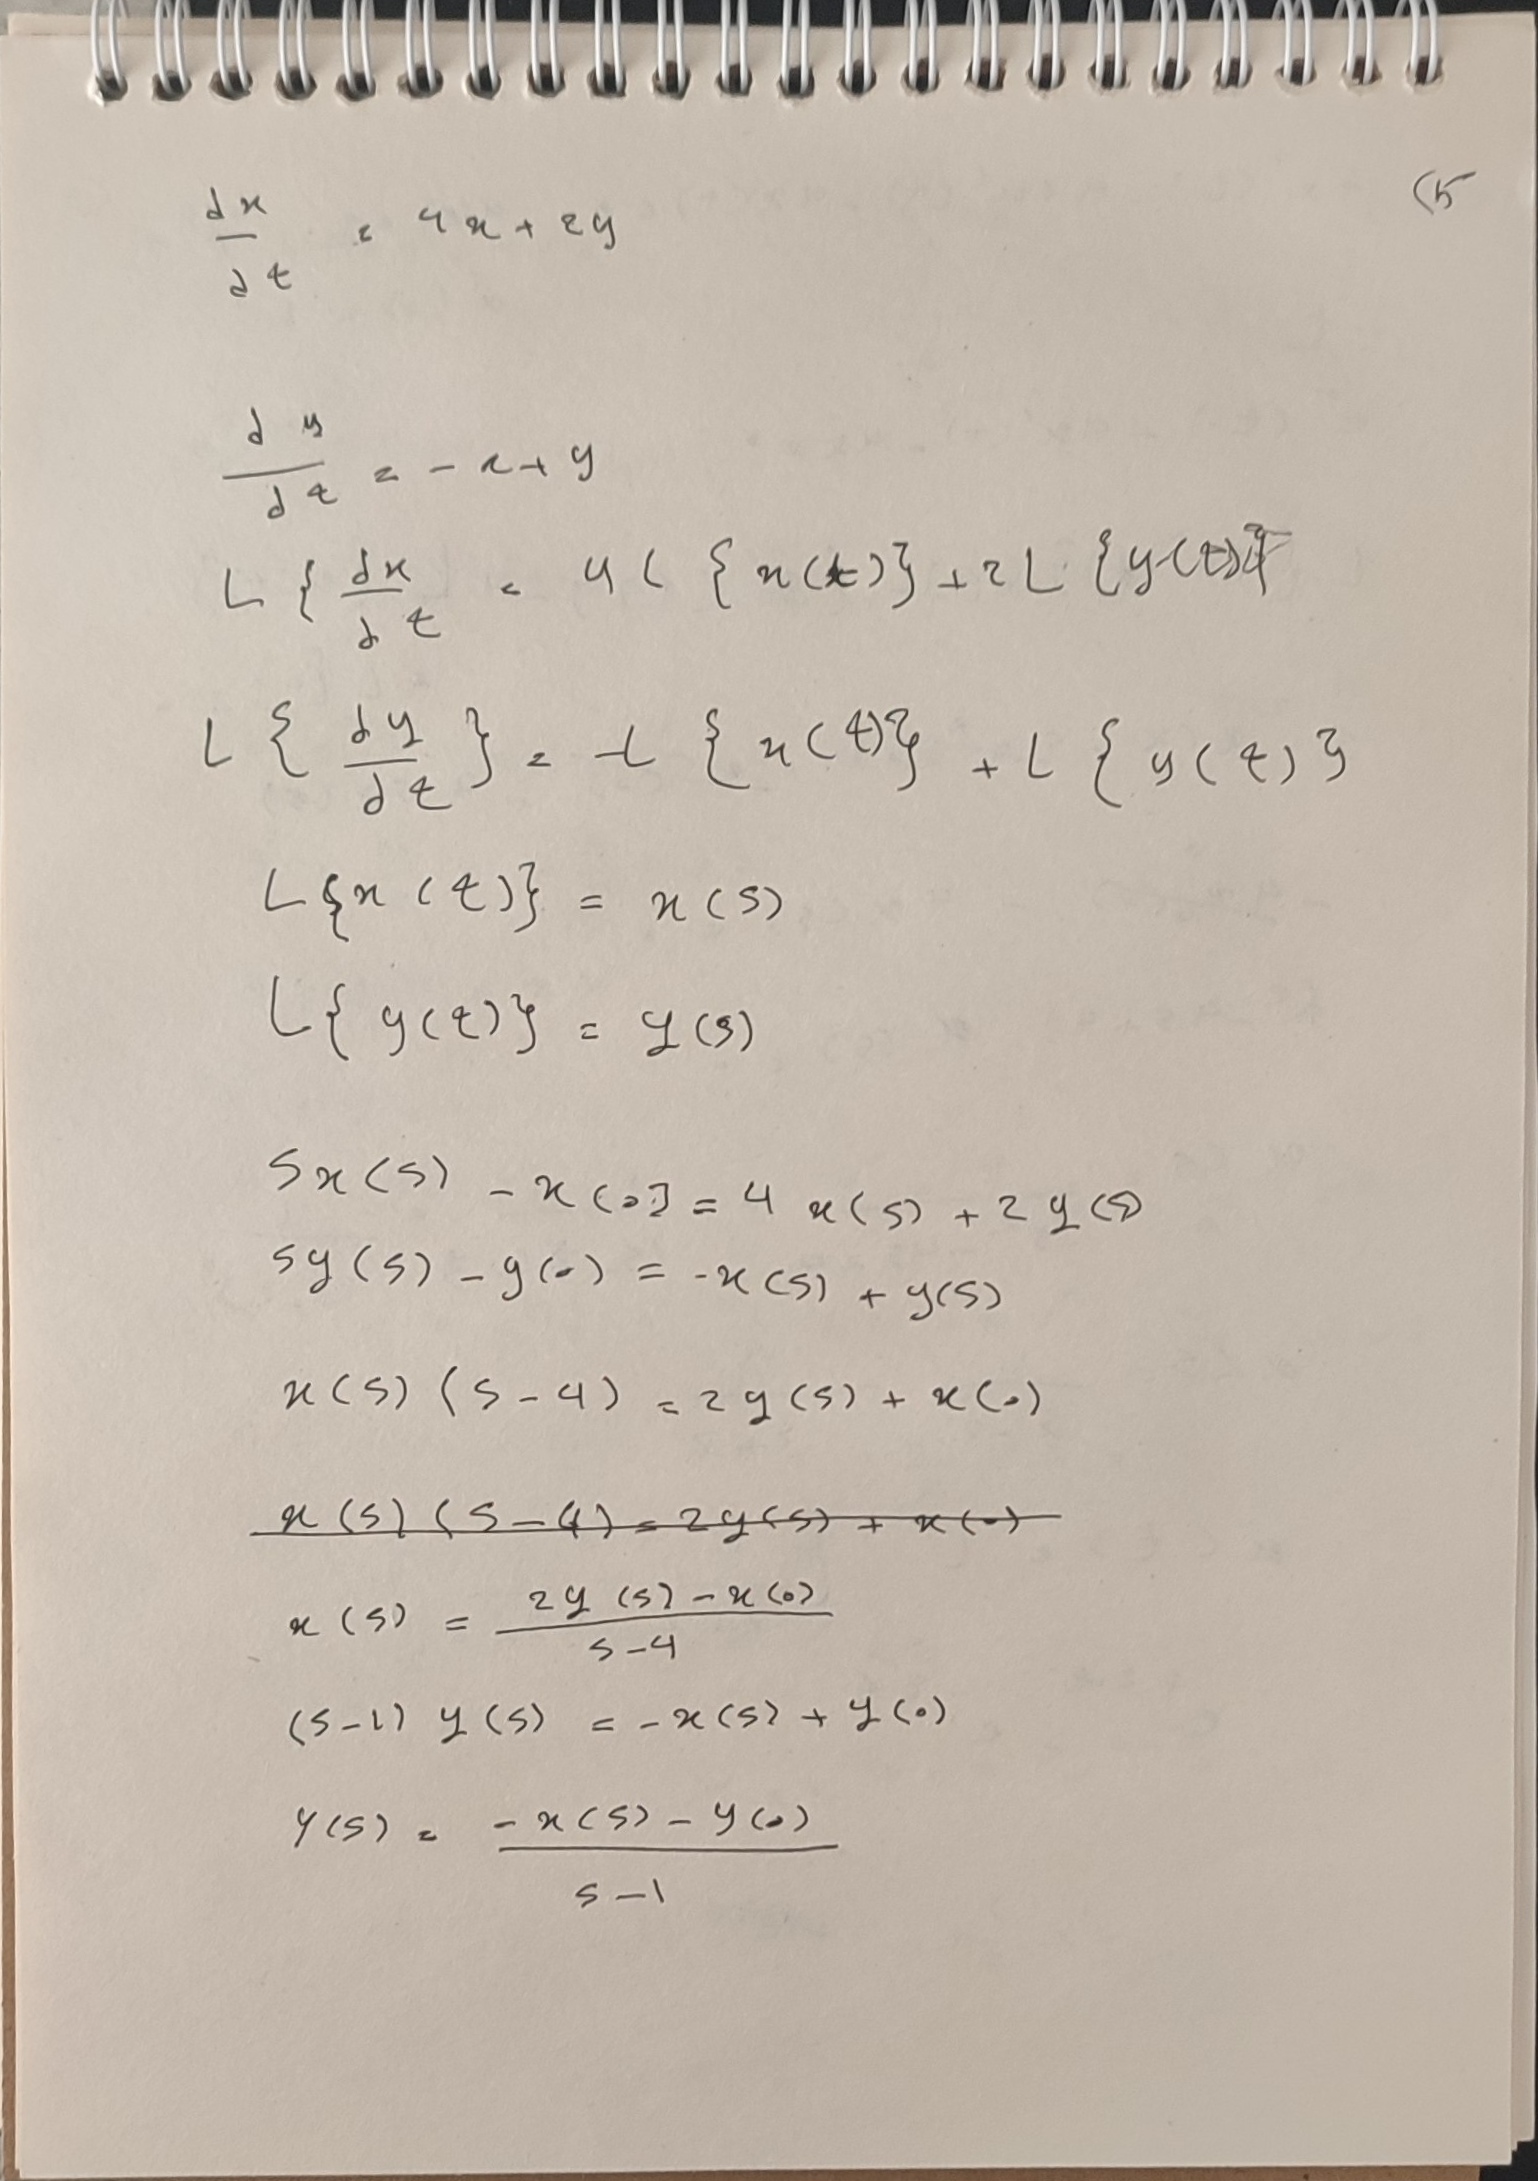 (5
dx/dt = 4x + 2y
dy/dt = -x + y
L { dx/dt = 4L {x(t)} + 2L {y(t)}
L { dy/dt } = -L {x(t)} + L {y(t)}
L{x(t)} = x(s)
L{y(t)} = y(s)
sx(s) - x(0] = 4x(s) + 2y(s)
sy(s) - y(0) = -x(s) + y(s)
x(s) (s-4) = 2y(s) + x(0)
x(s) (s-4) = 2y(s) + x(0)
x(s) = 2y(s) - x(0) / s-4
(s-1) y(s) = -x(s) + y(0)
Y(s) = -x(s) - y(0) / s-1